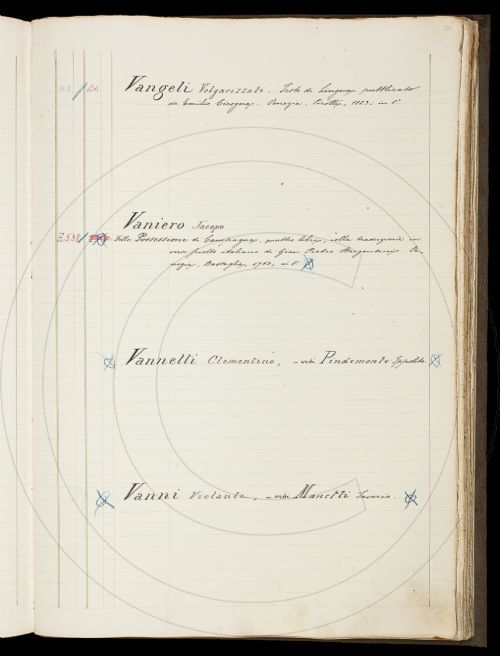 Vangeli Volgarizzati. Testo di lingua pubblicato
da Emilio Cicogna. Venezia, Picotti, 1823; in 8°
Vaniero Jacopo
Della Possessione di Campagna, libri, colla traduzione in
verso sciolto italiano di Gian Pietro Bergantini. Ve-
nezia, Bassaglia, in 8°
Vannetti Clementino, – vedi Pindemonte Ippolito.
Vanni Violante, – vedi Manetti Saverio.